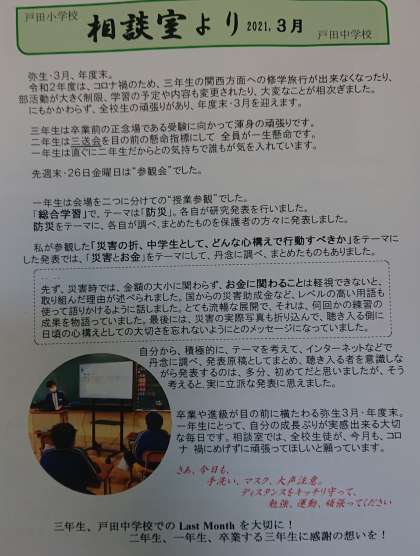 戸田小学校
相談室より 2021.3月
戸田中学校
弥生・3月、年度末。
令和2年度は、コロナ禍のため、三年生の関西方面への修学旅行が出来なくなったり、
部活動が大きく制限、学習の予定や内容も変更されたり、大変なことが相次ぎました。
にもかかわらず、全校生の頑張りがあり、年度末・3月を迎えます。
三年生は卒業前の正念場である受験に向かって渾身の頑張りです。
二年生は三送会を目の前の懸命指標にして 全員が一生懸命です。
一年生は直ぐに二年生だからとの気持ちで誰もが気を入れています。
先週末・26日金曜日は“参観会”でした。
一年生は会場を二つに分けての“授業参観”でした。
「総合学習」で、テーマは「防災」。各自が研究発表を行いました。
防災をテーマに、各自が調べ、まとめたものを保護者の方々に発表しました。
私が参観した「災害の折、中学生として、どんな心構えで行動すべきか」をテーマに
した発表では、「災害とお金」をテーマにして、丹念に調べ、まとめたものもありました。
先ず、災害時では、金額の大小に関わらず、お金に関わることは軽視できないと、
取り組んだ理由が述べられました。国からの災害助成金など、レベルの高い用語も
使って語りかけるように話しました。とても流暢な展開で、それは、何回かの練習の
成果を物語っていました。最後には、災害の実際写真も折り込んで、聴き入る側に
日頃の心構えとしての大切さを忘れないようにとのメッセージになっていました。
自分から、積極的に、テーマを考えて、インターネットなどで
丹念に調べ、発表原稿としてまとめ、聴き入る者を意識しな
がら発表するのは、多分、初めてだと思いましたが、そう
考えると、実に立派な発表に思えました。
卒業や進級が目の前に横たわる弥生3月・年度末。
一年生にとって、自分の成長ぶりが実感出来る大切
な毎日です。相談室では、全校生徒が、今月も、コロ
ナ禍にめげずに頑張ってほしいと願っています。
さあ、今日も、
手洗い、マスク、大声注意。
ディスタンスをキッチリ守って、
勉強、運動、頑張ってください
三年生、戸田中学校での Last Month を大切に！
二年生、一年生、卒業する三年生に感謝の想いを！